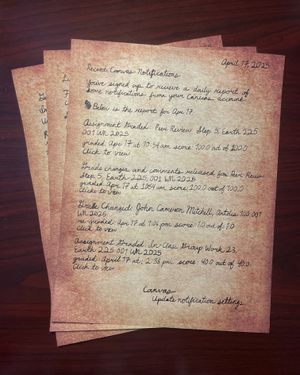 April 17, 2025
Recent Canvas Notifications
You've signed up to receive a daily report of
some notifications from your Canvas account
Below is the report for Apr 17
Assignment Graded: Peer Review Step 5, Earth 225
001 WN 2025
graded: Apr 17 at 10:54 am score: 100.0 out of 100.0
Click to view
Grade changes and comments released for: Peer Review
Step 5, Earth 225 001 WN 2025
graded: Apr 17 at 1054 am score: 100.0 out of 100.0
Click to view
Grade Changed: John Cameron Mitchell, 100 001
WN 2025
re-graded: Apr 17 at pm score: 1.0 out of 1.0
click to view
Assignment Graded: In Class Group Work 23,
Earth 225 001 WN 2025
graded: April 17 at 2:38 pm score: 40.0 out of 40.0
Click to view
Canvas
Update notification settings